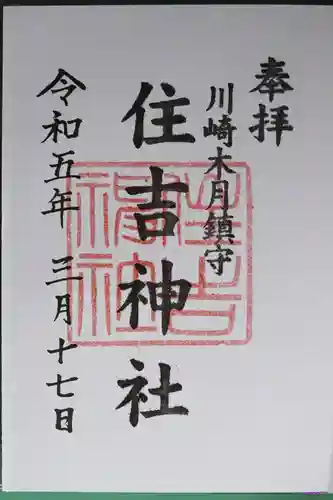 奉拝
川崎木月鎮守
住吉神社
令和五年 三月十七日
住吉
神社